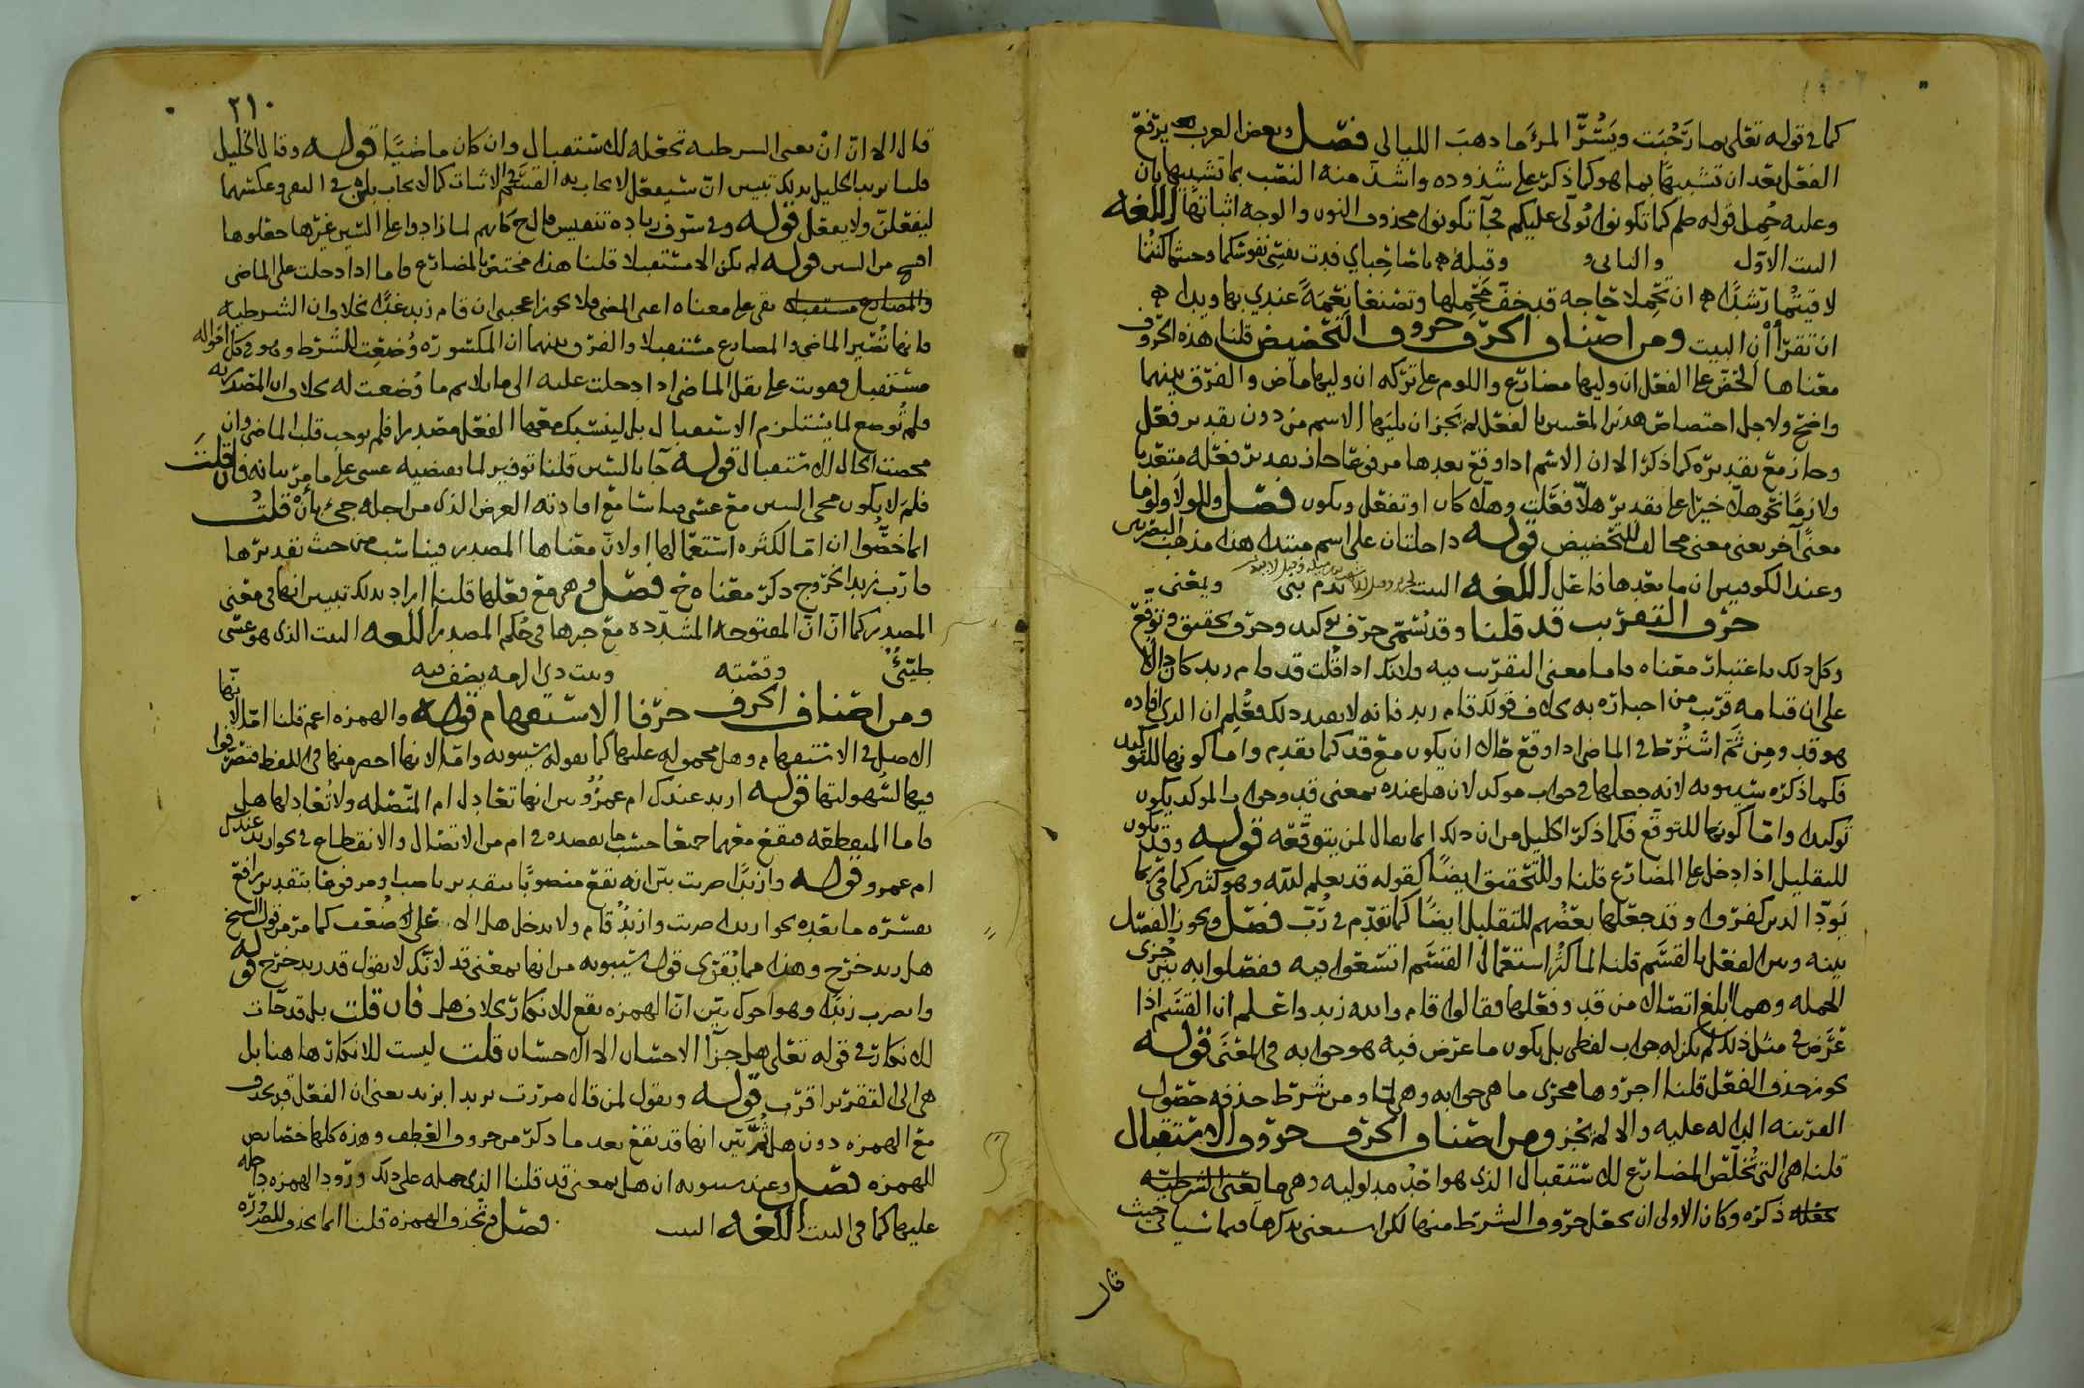 كما في قوله تعلى بما رَحُبَت ويَسُرُّ المرءَ ما ذهبَ الليالي فصل وبعض العرب يرفع
الفعل بعد ان تشبيهًا بما هو كما ذكر على شذوذه واشذ منه النصب بما تشبيها بان
وعليه حُمِل قوله صلم كما تكونوا يُولّى عليكم فجآ تكونوا محذوف النون والوجه اثباتها اللغه
البيت الاوّل والثاني و وقبله يا صاحِبَاي فدت نفسي نفوسَكما وحيثما كنتما
لاقيتما رَشَدًا ان تحمِلا حاجه قد خفّ محمِلها وتصنعا نِعمَةً عندي بها ويدا
ان تقرأان البيت ومن اصناف الحرف حروف التحضيض قلنا هذه الحروف
معناها الحض على الفعل ان وليها مضارع واللوم على تركه ان وليها ماض والفرق بينهما
واضح ولاجل اختصاص هذين المعنيين بالفعل لم يجز ان يليها الاسم من دون تقدير فعل
وجاز مع تقديره كما ذكر الا ان الاسم اذا وقع بعدها مرفوعا جاز تقدير فعله متعديا
ولازمًا نحو هلّا خيرًا على تقدير هلّا فعلت وهلّا كان او تفعل ويكون فصل وللولا ولوما
معنًى آخر يعني معنى مخالف للتحضيض قوله داخلتان على اسم مبتدا هذا مذهب البصريين
وعند الكوفيين ان ما بعدها فاعل اللغه البيت
حرف التقريب قد قلنا وقد تسمى حرف توكيد وحرف تحقيق وتوقّع
وكل ذلك باعتبار معناه واما معنى التقريب فيه فلانك اذا قلت قد قام زيد كان دالًا
على ان قيامه قرب من اخبارك به بخلاف قولك قام زيد فانه لا يفيد ذلك فعُلِم ان الذي افاده
هو قد ومِن ثَمّ اشتُرِط في الماضي اذا وقع حالا ان يكون مع قد كما تقدم واما كونها للتوكيد
فكما ذكره سيبويه لانه جعلها في جواب موكد لان هل عنده بمعنى قد وجواب الموكد يكون
توكيدا وامّا كونها للتوقع فكما ذكر الخليل من ان ذلك انما يقال لمن يتوقعه قوله وقد يكون
للتقليل اذا دخل على المضارع قلنا وللتحقيق ايضًا كقوله قد يعلم الله وهو كثير كما في ربما
يَودّ الذين كفروا وقد جعلها بعضهم للتقليل ايضًا كما تقدم في رُبّ فصل ويجوز الفصل
بينه وبين الفعل بالقسَم قلنا لما كثُر استعمال القسَم اتسَعوا فيه وفصلوا به بين جُزئي
الجمله وهما ابلغ اتصالا من قد وفعلها فقالوا قام والله زيد واعلم ان القسَم اذا
عَرَض في مثل ذلك لم يكن له جواب لفظي بل يكون ما عرض فيه هو جوابه في المعنى قوله
يجوز حذف الفعل قلنا اجروها مجرى ما هي جوابه وهي لمّا ومن شرط حذفه حصول
القرينه الداله عليه والا لم يجز ومن اصناف الحرف حروف الاستقبال
قلنا هي التي تُخلّص المضارع للاستقبال الذي هو احد مدلوليه وهي ما
ذكره وكان الاولى ان يجعل حروف الشرط منها لكن استغنى بذكرها فيما سياتي حيث
قال
٢١٠
قال الا انّ انْ يعني الشرطيه تجعله للاستقبال وان كان ماضيًا قوله وقال الخليل
قلنا يريد الخليل بذلك تبيين انّ سيفعل لايجاب به القسَم في الاثبات كما لا يجاب بلن في النفي وعكسهما
ليفعلنّ ولا يفعل قوله وفي سوف زياده تنفيس قال ح كانهم لما زادوا على السين غيرها جعلوها
افسح من السين قوله لم يكن الا مستقبلا قلنا هذا مختص بالمضارع واما اذا دخلت على الماضي
بقي على معناه اعني المضي فلا يجوز اعجبني ان قام زيد غدًا بخلاف ان الشرطيه
فانها تُصَيّر الماضي والمضارع مستقبلا والفرق بينهما ان المكسوره وُضعَت للشرط وهو في كل احواله
مستقبل فقويت على نقل الماضي اذا دخلت عليه الى ما يلايم ما وُضعت له بخلاف ان المصدريه
فلم تُوضع لما يستلزم الاستقبال بل لينسَبك معها الفعل مصدرا فلم يوجب قلب الماضي وان
محضت الحال للاستقبال قوله جا بالسين قلنا توفير لما يقتضيه عسى على ما مرّ بيانه فان قلتَ
فلمَ لا يكون مجي السين مع عسى قياسا مع افادته الغرض الذي من اجله جيء بأنْ قلتُ
انما خصُّوا ان امّا لكثره استعمالها او لانّ معناها المصدر فيناسب من حيث تقديرها
قارَب زيد الخروج ذكرَ معناه ح فصل وهي مع فعلها قلنا اراد بذلك تبيين انها في معنى
المصدر كما ان انّ المفتوحه المشدّده مع خبرها في حُكم المصدر اللغه البيت الذي هو عسى
طيّئٌ وقصته وبيت ذي الرمه يصف فيه
ومن اصناف الحرف حرفا الاستفهام قوله والهمزه اعم قلنا امّا لانّها
الاصل في الاستفهام وهل محموله عليها كما يقوله سيبويه وامّا لانها اخصر منها في اللفظ فتصرّفوا
فيها لسُهولتها قوله ازيد عندك ام عمرٌو بين انها تعادل ام المتّصله ولا تُعادلها هل
فاما المنقطعه فيقع معهما جميعا حسب ما يقصده في ام من الاتصال والانقطاع في نحو ازيد عندك
ام عمرو قوله وازيدًا ضربت بيّن انه يقع منصوبًا بتقدير ناصب ومرفوعًا بتقدير رافع
يفسّره ما بعده نحو ازيدا ضربت وازيدٌ قام ولا يدخل هل الا على ضعف كما مرّ من قول الشيخ
هل زيد خرج وهذا مما يُقوّي قول سيبويه من انها بمعنى قد لانّك لا تقول قد زيد خرج قوله
واتضرب زيدًا وهو اخوك بيّن انّ الهمزه يقع للانكار بخلاف هل فان قلت بلى قد جاءت
للانكار في قوله تعلى هل جزآ الاحسان الا الاحسان قلت ليست للانكار هاهنا بل
هي الى التقرير اقرب قوله وتقول لمن قال مررت بزيد ابزيد يعني ان الفعل قد يحذف
مع الهمزه دون هل ثمّ بيّن انها قد تقع بعد ما ذكر من حروف العَطف وهذه كلها خصايص
للهمزه فصل وعند سيبويه ان هل بمعنى قد قلنا الذي حمله على ذلك ورود الهمزه داخله
عليها كما في البيت اللغه البيت فصل في تحذف الهمزه قلنا انما يحذف للضروره